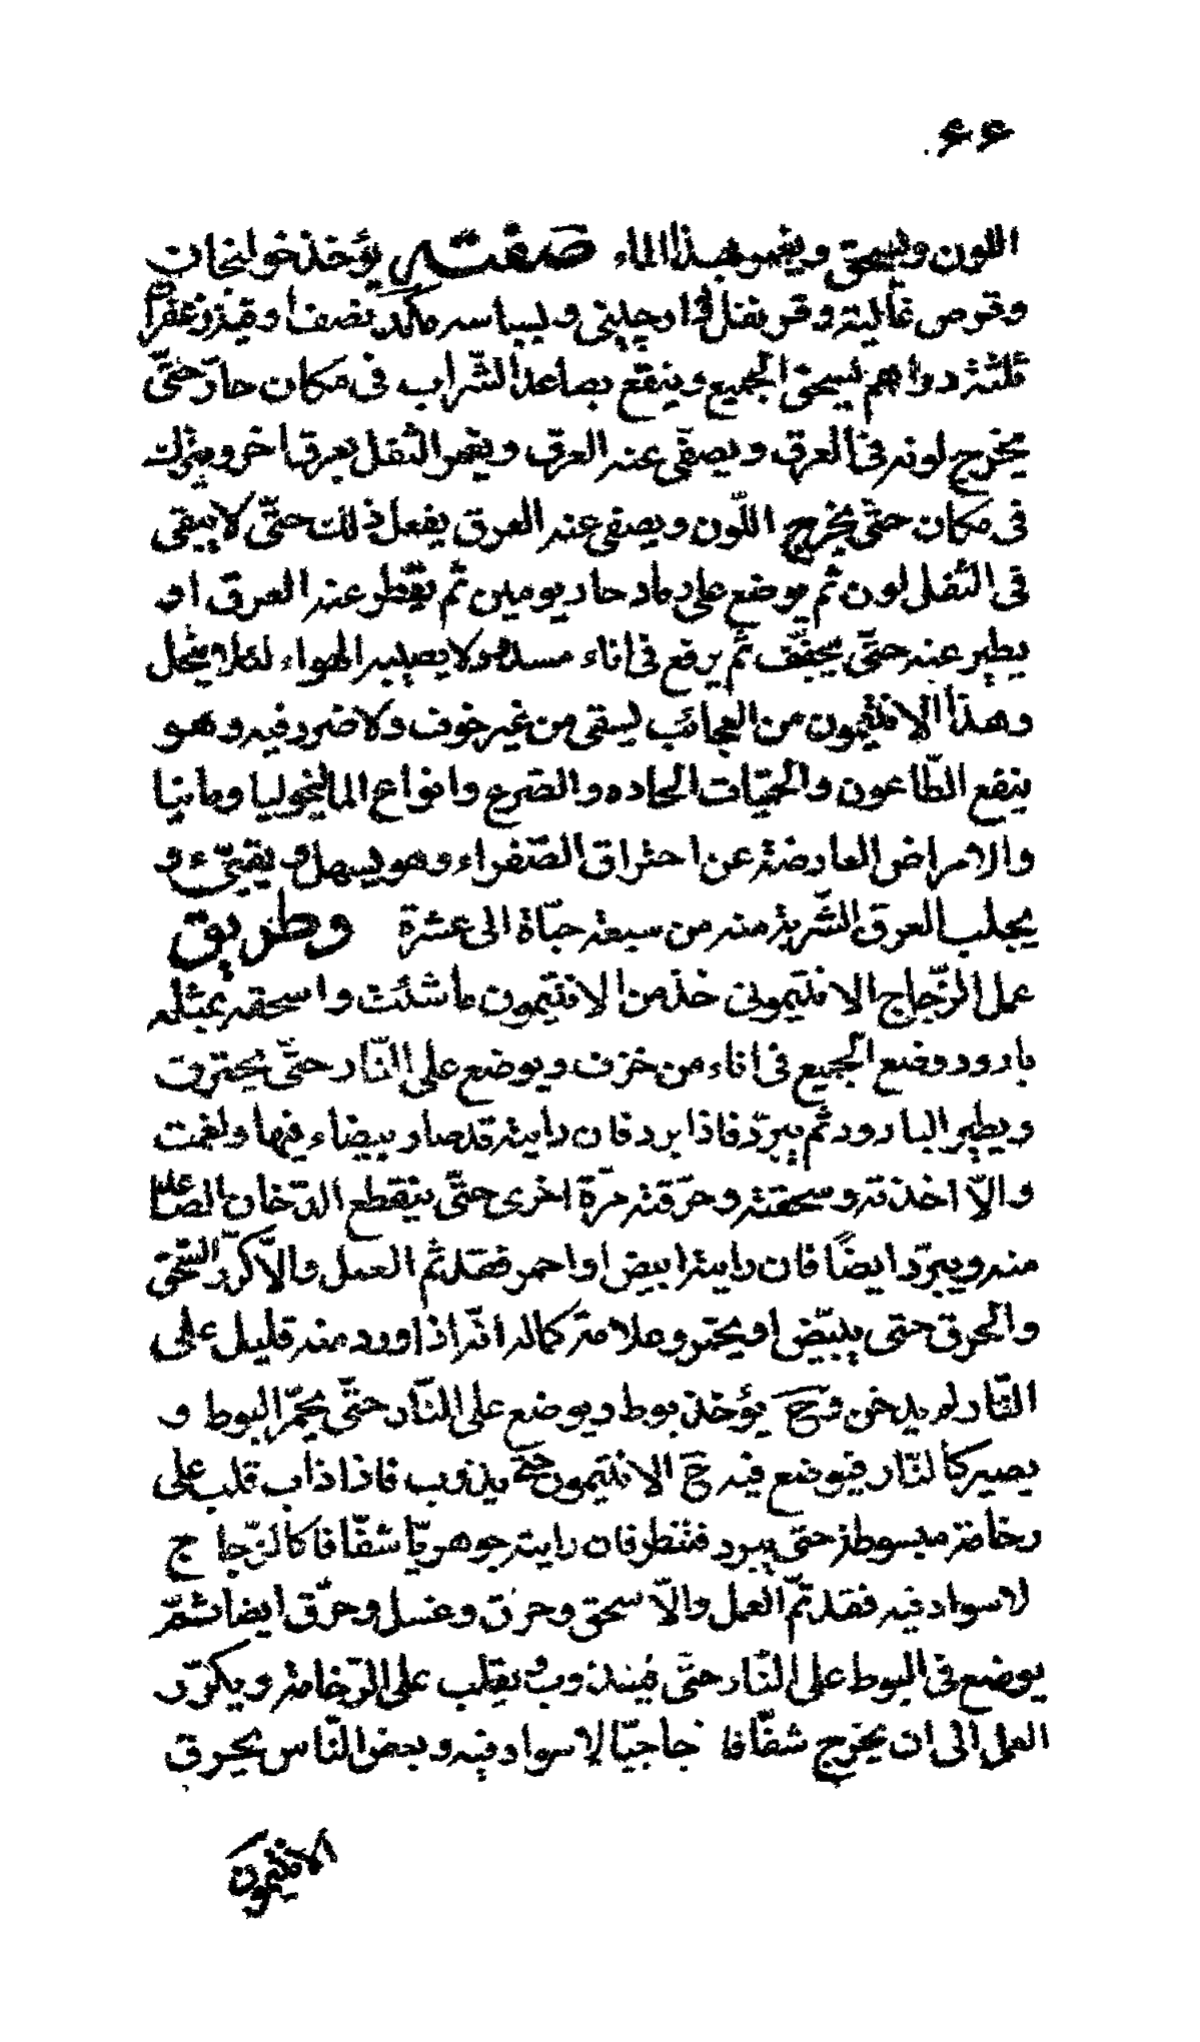 ۶۶
اللون ويسحق ويغمر بهذا الماء صفته يؤخذ خولنجان
وقرص غالية وقرنفل دارچيني وبسباسه نصفا وقية زعفران
ثلثة دراهم يسحق الجميع وينقع بصاعد الشّراب فى مكان حارّ حتّى
يخرج لونه فى العرق ويصفّى عنه العرق ويغمر الثفل بعرق اخر ويترك
فى مكان حتّى يخرج اللّون ويصفى عنه العرق يفعل ذلك حتّى لا يبقى
فى الثفل لون ثم يوضع على رماد حار يومين ثم يقطر عنه العرق او
يطير عنه حتّى يجفّف ثم يرفع فى اناء مسدود لا يصيبه الهواء لئلا ينحل
وهذا الانتيمون من العجائب يسقى من غير خوف ولا ضرر فيه وهو
ينفع الطّاعون والحمّيات الحاده والصّرع وانواع الماليخوليا ومانيا
والامراض العارضة عن احتراق الصّفراء وهو يسهل ويقيّء و
يجلب العرق الشّربة منه من سبعة حبّاة الى عشرة وطريق
عمل الزّجاج الانتيمونى خذ من الانتيمون ما شئت واسحقه بمثله
بارود وضع الجميع فى اناء من خزف ويوضع على النّار حتّى يحترق
ويطير البارود ثم يبرّد فاذا برد فان رايته قد صار بيضاء فيها ونعمت
والّا اخذته وسحقته وحرّقته مرّة اخرى حتّى ينقطع الدّخان الصّاعد
منه ويبرّد ايضًا فان رايته ابيض او احمر فقد تم العمل والّا كرّر السّحق
والحرق حتى يبيّض او يحمر وعلامة كماله انّه اذا اورد منه قليل على
النّار لم يدخن يؤخذ بوط ويوضع على النّار حتّى يحمّر البوط و
يصير كالنّار فيوضع فيه الانتيمون حتى يذوب فاذا ذاب قلب على
رخامة مبسوطة حتى يبرد فتنظر فان رايته جوهريّا شفّافا كالزّجاج
لا سواد فيه فقد تمّ العمل والّا سحق وحرق وغسل وحرّق ايضا ثمّ
يوضع فى البوط على النّار حتّى يذوب ويقلب على الرّخامة ويكرّر
العمل الى ان يخرج شفّافا زجاجيّا لا سواد فيه وبعض النّاس يحرق
الانتيمون